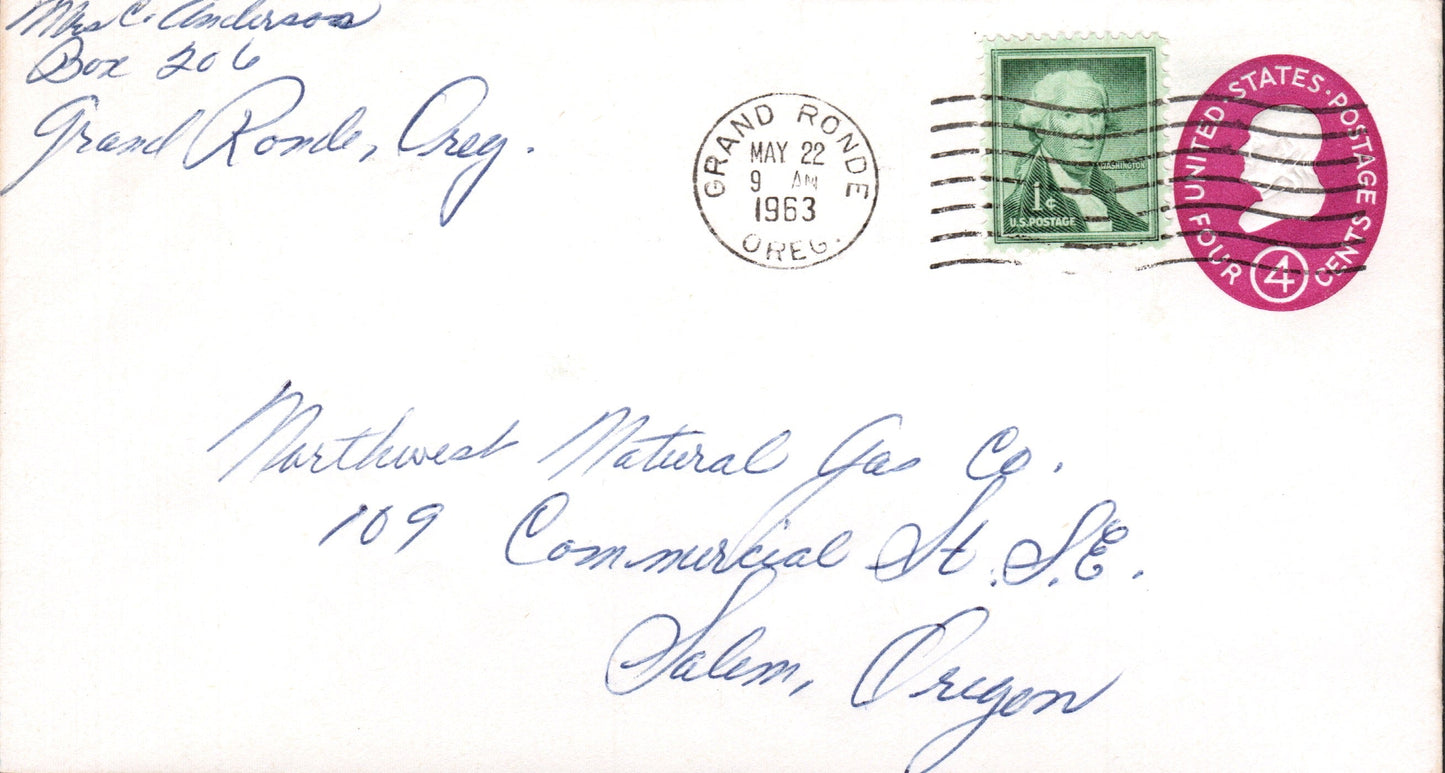 Mrs C. Anderson
Box 206
Grand Ronde, Oreg.
GRAND RONDE
MAY 22
9 AM
1963
OREG.
WASHINGTON
1¢
U.S. POSTAGE
UNITED · STATES · POSTAGE
FOUR 4 CENTS
Northwest Natural Gas Co.
109 Commercial St. S.E.
Salem, Oregon